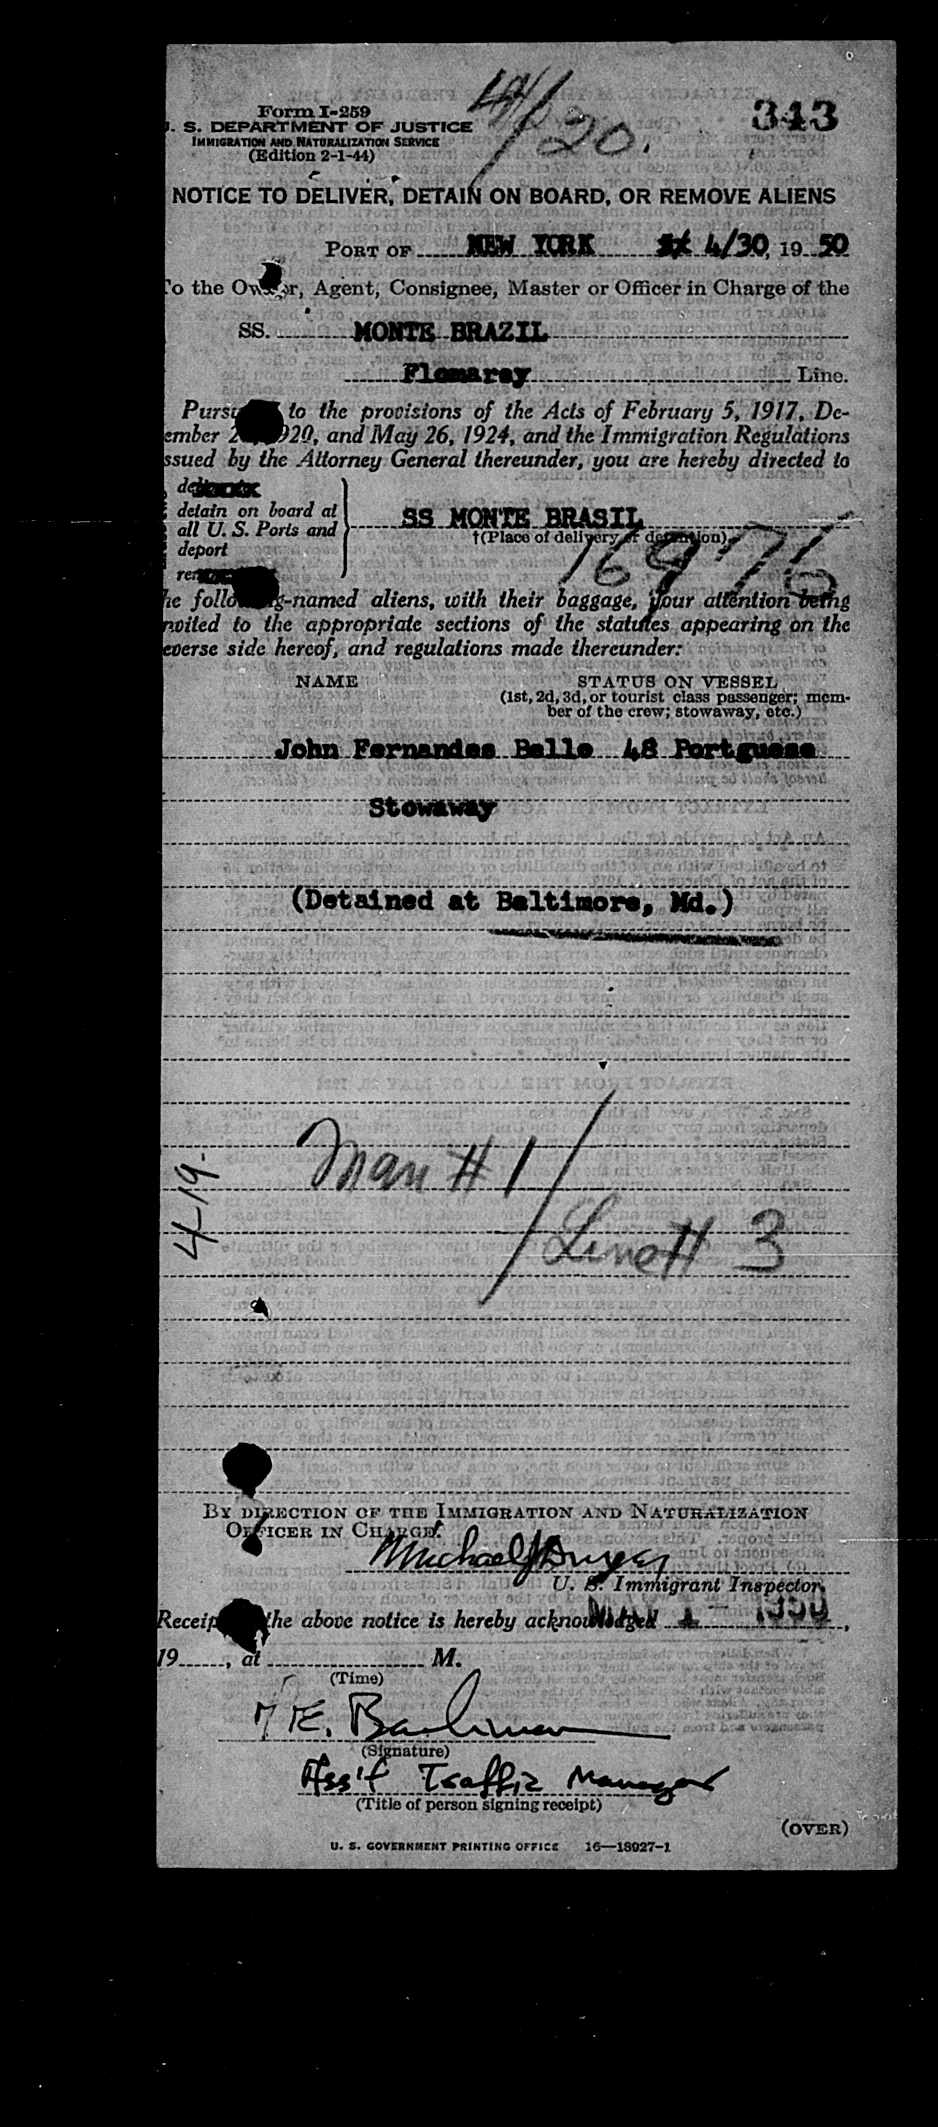 4/20.
343
Form I-259
. S. DEPARTMENT OF JUSTICE
IMMIGRATION AND NATURALIZATION SERVICE
(Edition 2-1-44)
NOTICE TO DELIVER, DETAIN ON BOARD, OR REMOVE ALIENS
PORT OF NEW YORK 4/30, 19 50
To the Ow er, Agent, Consignee, Master or Officer in Charge of the
SS. MONTE BRAZIL
Flomarsy Line.
Pursu to the provisions of the Acts of February 5, 1917, De-
ember 2 920, and May 26, 1924, and the Immigration Regulations
ssued by the Attorney General thereunder, you are hereby directed to
de
detain on board at
all U. S. Ports and
deport
re
SS MONTE BRASIL
†(Place of delivery or detention)
16976
he follo g-named aliens, with their baggage, your attention being
nvited to the appropriate sections of the statutes appearing on the
everse side hereof, and regulations made thereunder:
NAME STATUS ON VESSEL
(1st, 2d, 3d, or tourist class passenger; mem-
ber of the crew; stowaway, etc.)
John Fernandes Bello 48 Portguese
Stowaway
(Detained at Baltimore, Md.)
Man # 1 /
Line # 3
4-19-
BY DIRECTION OF THE IMMIGRATION AND NATURALIZATION
OFFICER IN CHARGE:
Michael J Dwyer
U. S. Immigrant Inspector.
Receip the above notice is hereby acknowledged MAY 1 - 1950,
19 , at M.
(Time)
E.
(Signature)
Ass't Traffic Manager
(Title of person signing receipt)
(OVER)
U. S. GOVERNMENT PRINTING OFFICE 16—18027-1